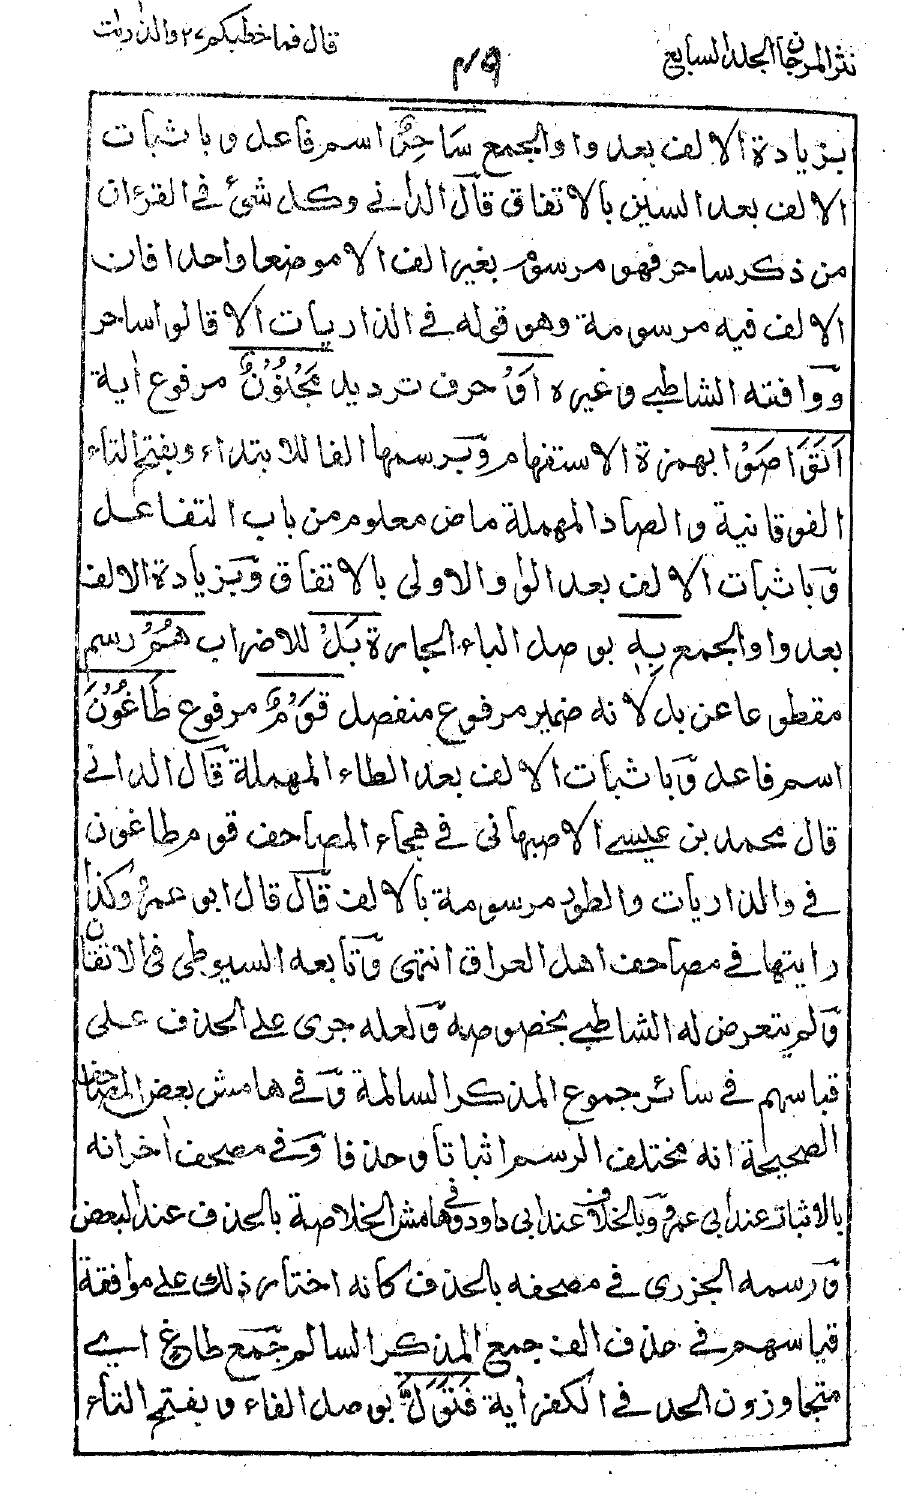 نثر المرجان الجلد السابع
٢١٩
قال فما خطبكم ٢٧ والذاريات
بزيادة الالف بعد واو الجمع سَاحِرٌ اسم فاعل وباثبات
الالف بعد السين بالاتفاق قال الدانى وكل شئ فى القرءان
من ذكر ساحر فهو مرسوم بغير الف الا موضعا واحدا فان
الالف فيه مرسومة وهو قوله فى الذاريات الا قالوا ساحر
ووافقه الشاطبى وغيره اَوْ حرف ترديد مَجْنُوْنٌ مرفوع اٰية
اَتَوَاصَوْا بهمزة الاستفهام وبرسمها الفا للابتداء وبفتح التاء
الفوقانية والصاد المهملة ماض معلوم من باب التفاعل
وباثبات الالف بعد الواو الاولى بالاتفاق وبزيادة الالف
بعد واو الجمع بِهٖ بوصل الباء الجارة بَلْ للاضراب هُمْ رسم
مقطوعا عن بل لانه ضمير مرفوع منفصل قَوْمٌ مرفوع طَاغُوْنَ
اسم فاعل وباثبات الالف بعد الطاء المهملة قال الدانى
قال محمد بن عيسى الاصبهانى فى هجاء المصاحف قوم طاغون
فى والذاريات والطور مرسومة بالالف قال قال ابو عمرو وكذا
رايتها فى مصاحف اهل العراق انتهى وتابعه السيوطى فى الاتقان
ولم يتعرض له الشاطبى بخصوصه ولعله جرى على الحذف على
قياسهم فى سائر جموع المذكر السالمة وفى هامش بعض المصاحف
الصحيحة انه مختلف الرسم اثباتا وحذفا وفى مصحف اٰخر انه
بالاثبات عند ابى عمرو وبالخلاف عند ابى داود وفى هامش الخلاصة بالحذف عند البعض
ورسمه الجزرى فى مصحفه بالحذف كانه اختار ذلك على موافقة
قياسهم فى حذف الف جمع المذكر السالم جمع طاغ اى
متجاوزون الحد فى الكفر اٰية فَتَوَلَّ بوصل الفاء وبفتح التاء